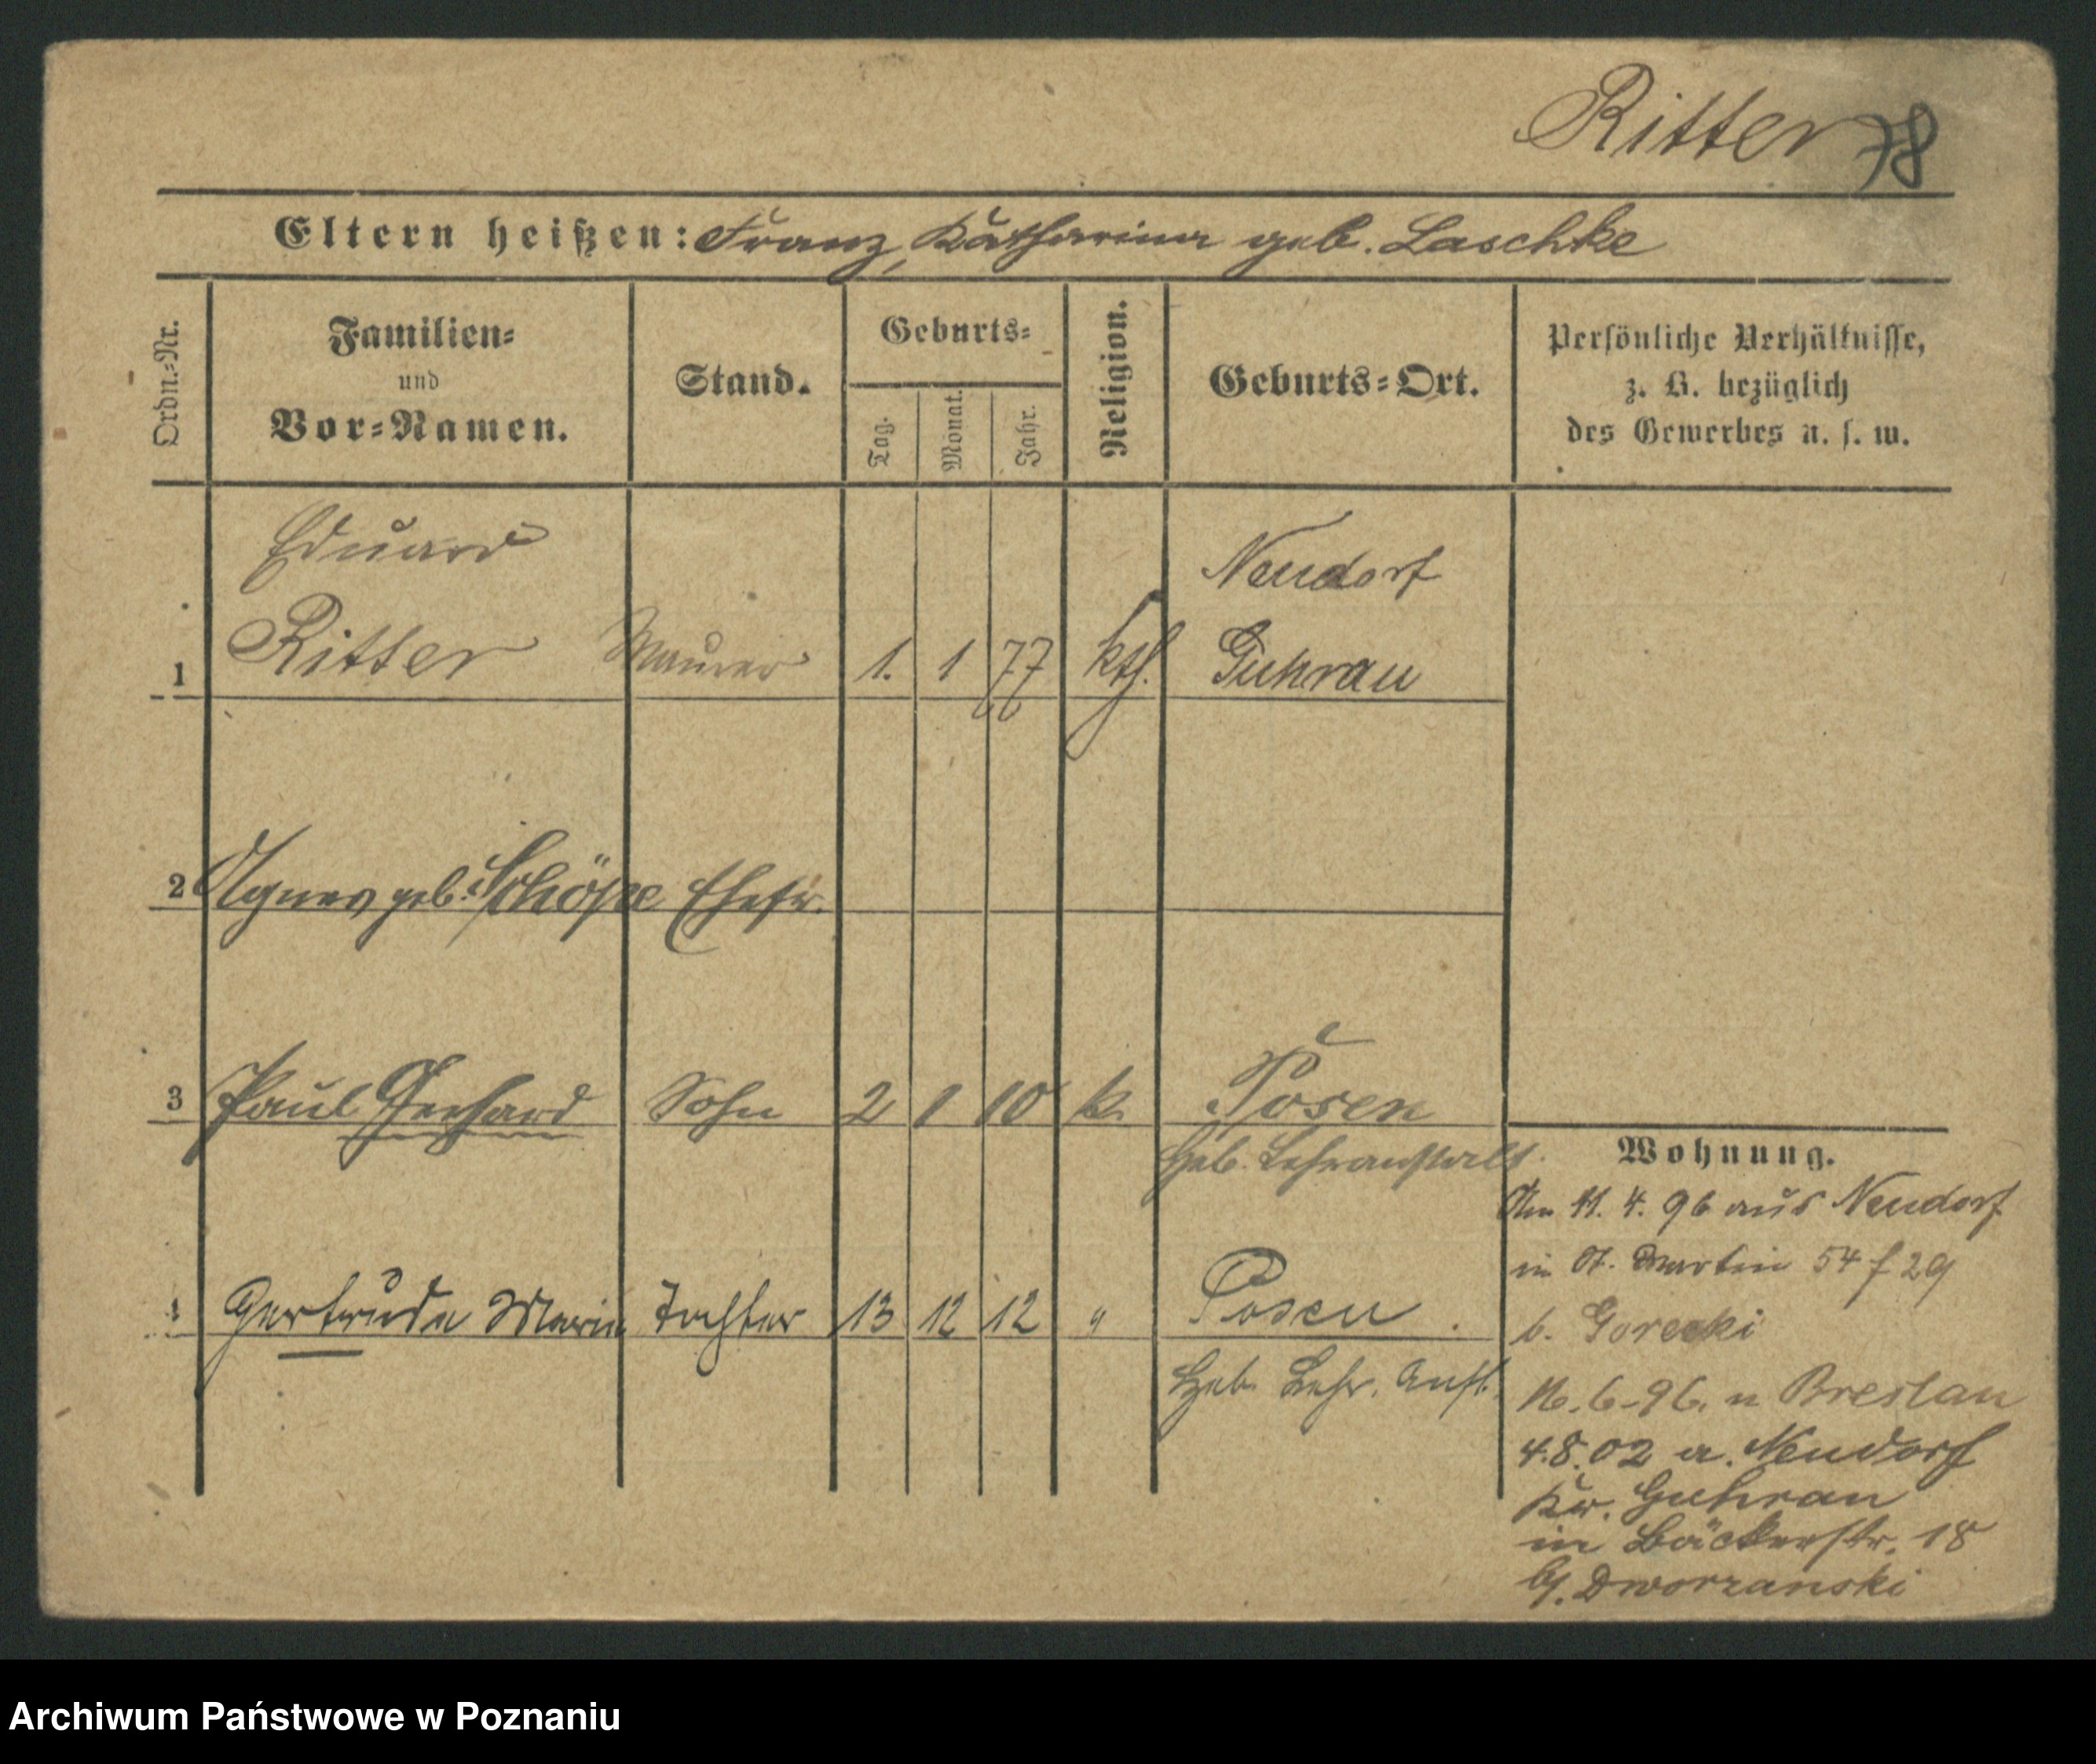 Ritter 78
Eltern heißen: Franz, Katharina geb. Laschke
Ordn.-Nr.
Familien-
und
Vor-Namen.
Stand.
Geburts-
Tag.
Monat.
Jahr.
Religion.
Geburts-Ort.
Persönliche Verhältnisse,
z. B. bezüglich
des Gewerbes u. s. w.
Eduard
Neudorf
1 Ritter Maurer 1. 1 77 kth. Guhrau
2 Agnes geb. Schöpe Ehefr.
3 Paul Gerhard Sohn 2 1 10 k. Posen
Heb. Lehranstalt.
4 Gertrude Marie Tochter 13 12 12 " Posen.
Heb. Lehr. Anst.
Wohnung.
Am 11. 4. 96 aus Neudorf
in St. Martin 54 f 29
b. Gorecki
16. 6. 96. n Breslau
4.8.02 a. Neudorf
Kr. Guhrau
in Bäckerstr. 18
b. Dworzanski
Archiwum Państwowe w Poznaniu